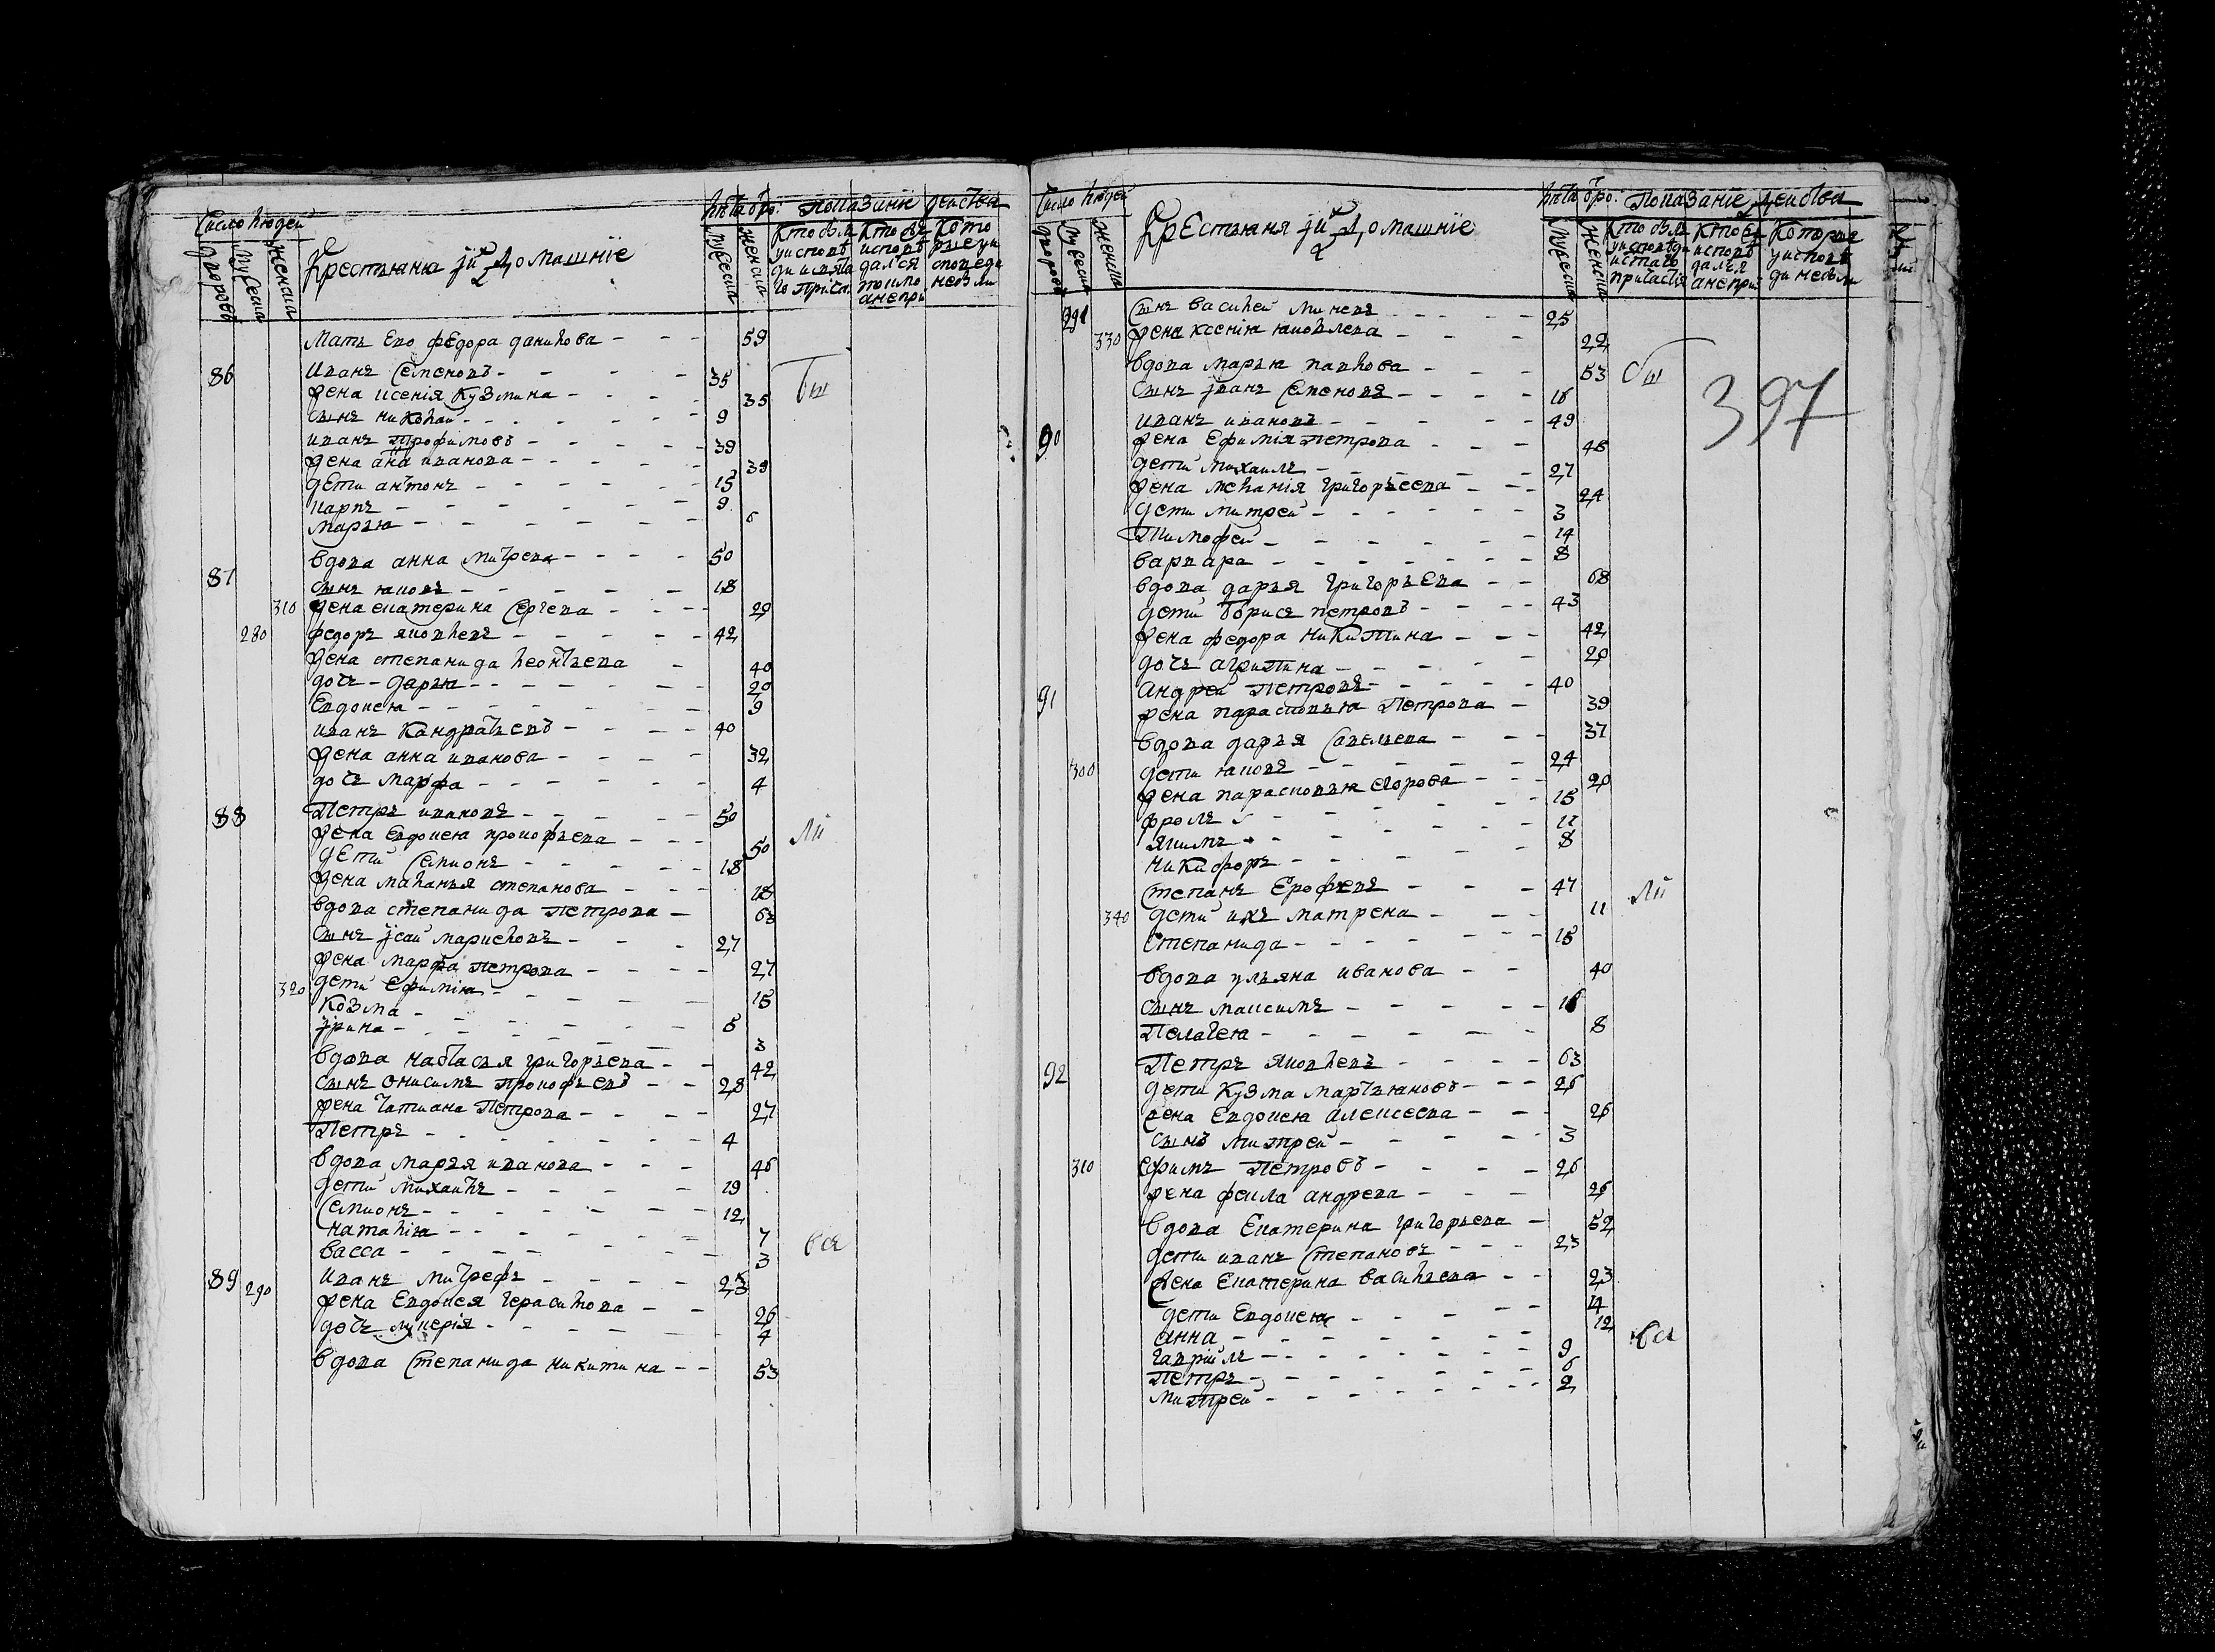 Число людей
дворовъ
мужеска
женска
Крестьяня и ихъ домашнїе
лѣта ѡтъ ро:
мужеска
женска
показанїе действа
кто былъ у исповѣди и святаго причас.
кто былъ исповѣдался токмо а не при
которые у исповеди не были
Мать ево федора данилова - - - 59
86 иванъ семеновъ - - - 35 был
жена ксенїя кузмина - - - 35
сынъ николай - - - 9
иванъ трофимовъ - - - 39
жена анна иванова - - - 39
дети антонъ - - - 15
карпъ - - - 9
марья - - - 6
вдова анна митрева - - - 50
87 сынъ яковъ - - - 18
310 жена екатерина сергева - - - 29
280 федоръ яковлевъ - - - 42
жена степанида леонтьева - 40
дочь - дарья - - - 20
Евдокея - - - 9
иванъ кандратьевъ - - - 40
жена анна иванова - - - 32
дочь марфа - - - 4
88 Петръ ивановъ - - - 50
жена Евдокея прокофьева - - - 50 ли
дети семионъ - - - 18
жена маланья степанова - - - 18
вдова степанида петрова - 63
сынъ jсай маркеловъ - - - 27
жена марфа петрова - - - 27
320 дети ефимия - - - 15
козма - - - 5
jрина - - - 3
вдова настасья григорьева - - 42
сынъ онисимъ прокофьевъ - - 28
жена татиана Петрова - - - 27
Петръ - - - 4
вдова марья иванова - - - 46
дети михаилъ - - - 19
семионъ - - - 12
наталїа - - - 7
васса - - - 3 вся
89 290 иванъ митрефъ - - - 25
жена Евдокея герасимова - - 26
дочь лукерїя - - - 4
вдова степанида никитина - - 53
Число людей
дворовъ
мужеска
женска
Крестьяня и ихъ домашнїе
лѣта ѡтъ ро:
мужеска
женска
показанїе действа
кто былъ у исповѣди и святаго причастїя
кто былъ исповѣдался а не прич
которые у исповѣди не были
291 сынъ василей миневъ - - - 25
330 жена ксенїя яковлева - - - 22
вдова марья павлова - - - 53 был
сынъ jванъ семеновъ - - - 16
397
90 иванъ ивановъ - - - 49
жена Ефимїя петрова - - - 46
дети михаилъ - - - 27
жена меланїя григорьеева - - - 24
дети митрей - - - 3
Тимофей - - - 14
варвара - - - 8
вдова дарья григорьева - - 68
дети борисъ петровъ - - - 43
жена федора никитина - - - 42
дочь агрипина - - - 20
91 андрей петровъ - - - 40
жена парасковья Петрова - 39
вдова дарья савельева - - - 37
300 дети яковъ - - - 24
жена парасковья егорова - - - 20
фролъ - - - 15
якимъ - - - 11
никифоръ - - - 8
степанъ Ерофеевъ - - - 47
340 дети ихъ матрена - - - 11 ли
степанида - - - 15
вдова ульяна иванова - - 40
сынъ максимъ - - - 16
Пелагея - - - 8
92 Петръ яковлевъ - - - 63
дети кузма мартьяновъ - - - 26
жена Евдокея алексеева - - - 26
сынъ митрей - - - 3
310 ефимъ Петровъ - - - 26
жена фекла андрева - - - 26
вдова Екатерина григорьева - 52
дети иванъ степановъ - - - 23
жена Екатерина васильева - - 23
дети Евдокея - - - 14
анна - - - 12 вся
гаврийлъ - - - 9
Петръ - - - 6
митрей - - - 2